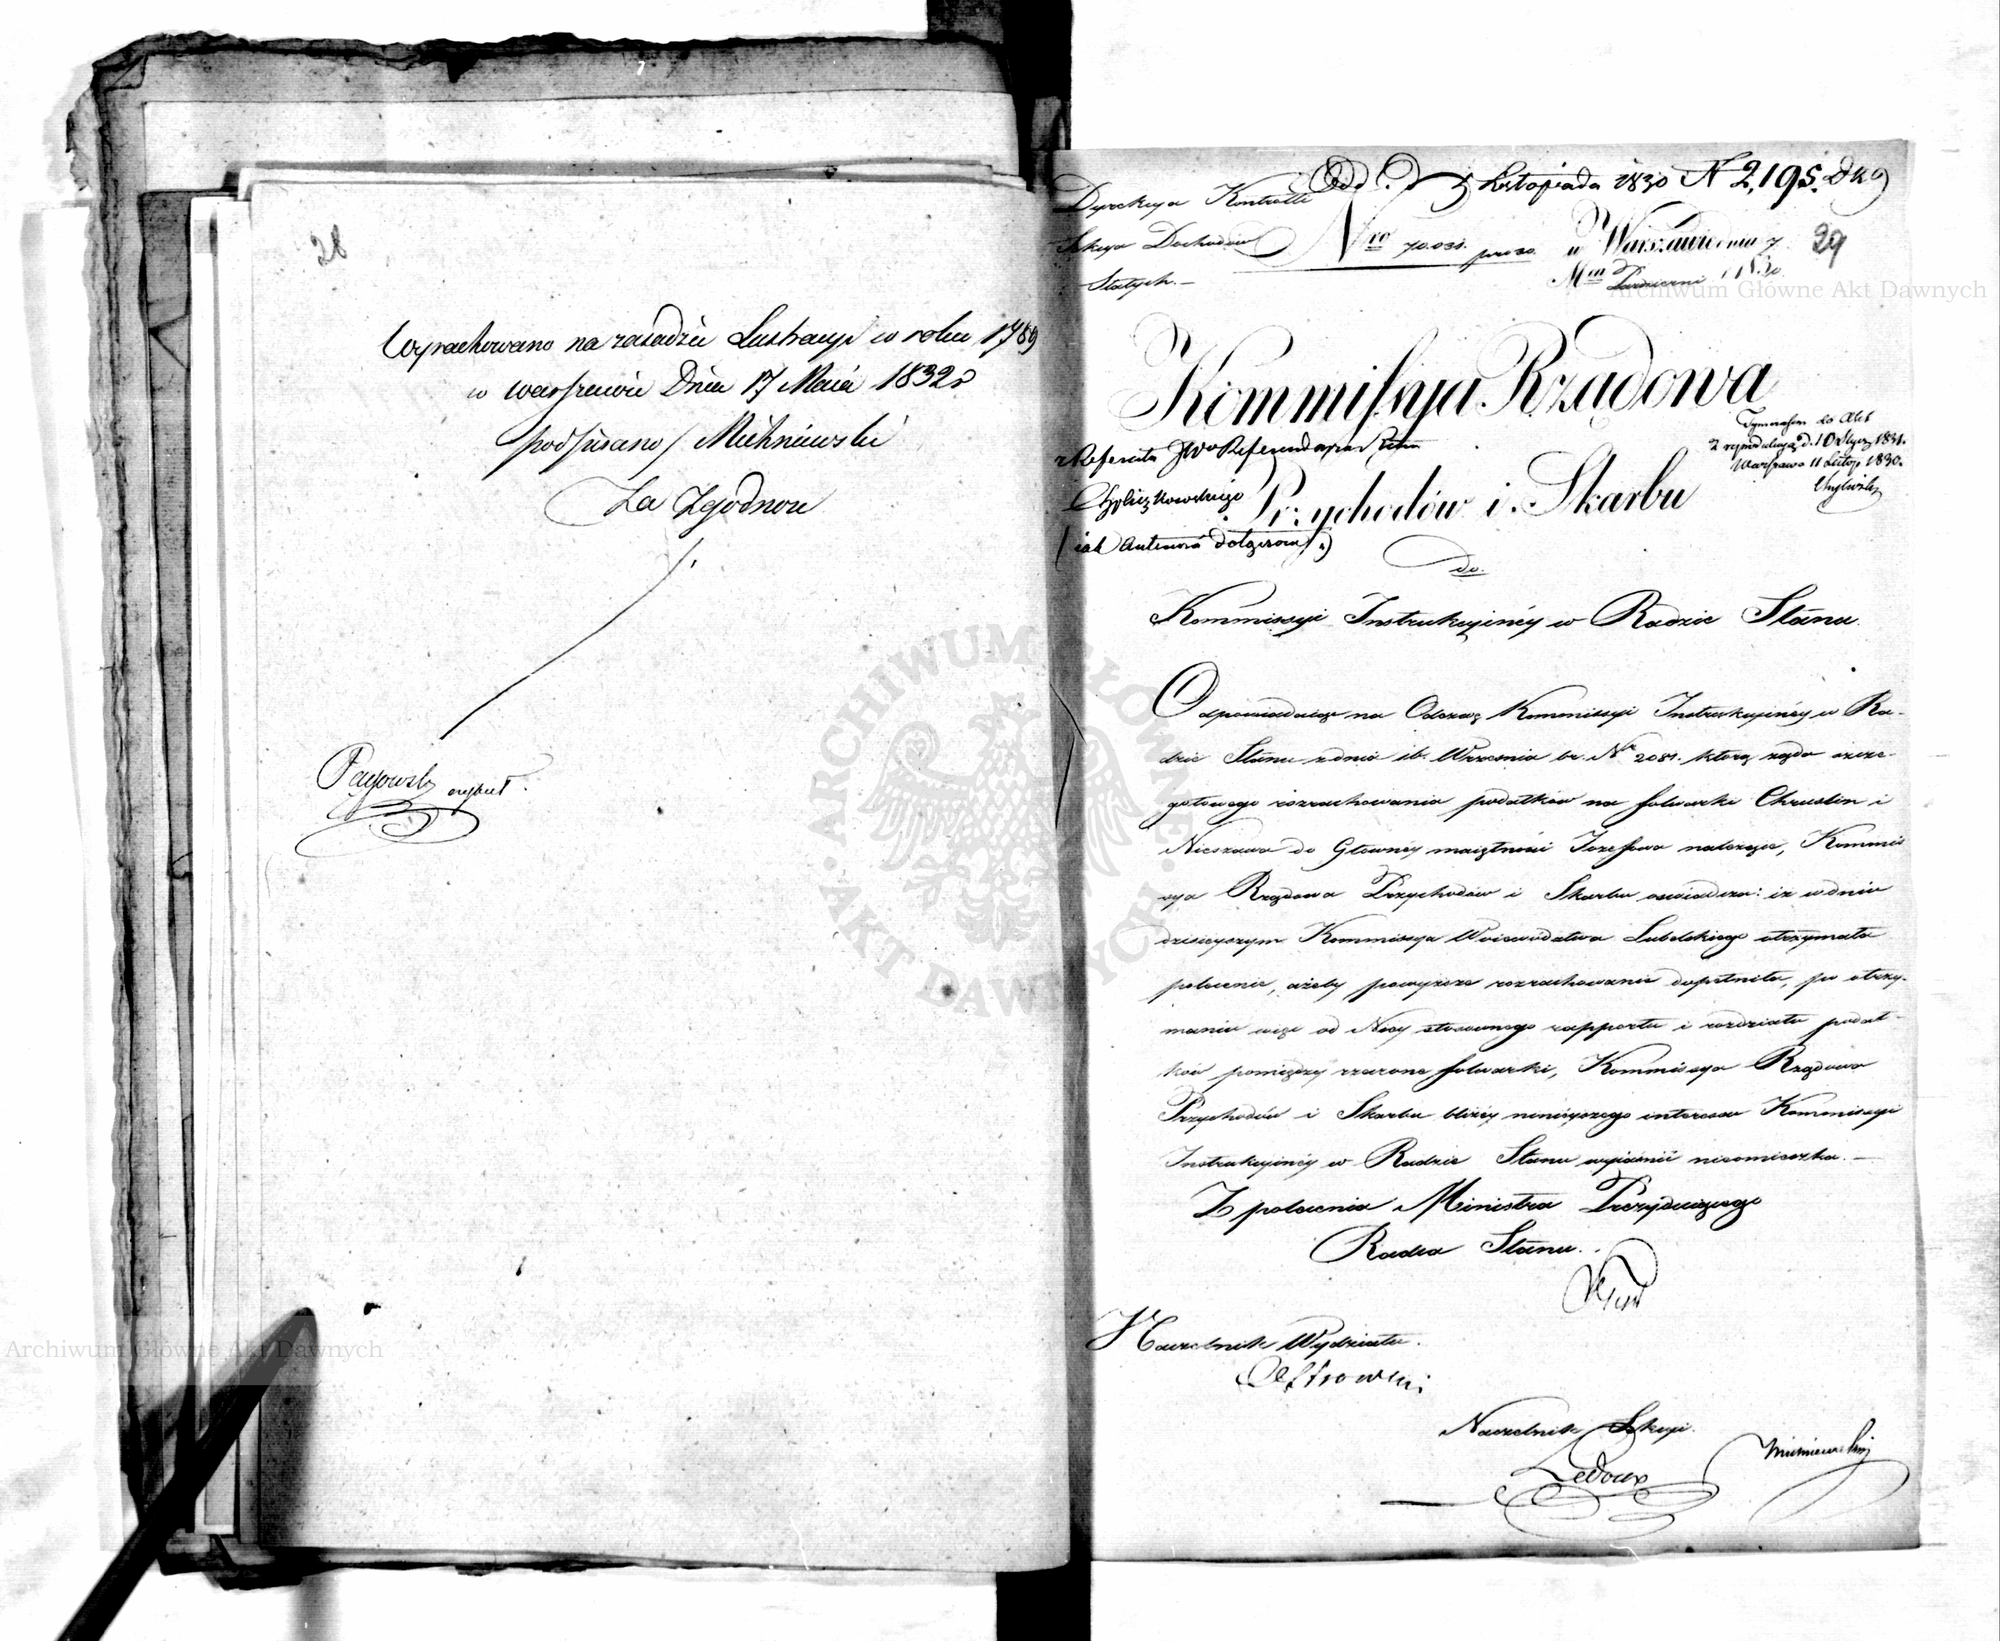 28
Wyrachowano na zasadzie Lustracyi w roku 1789
w Warszawie Dnia 17 Maia 1832 r
podpisano / Michniewski
Za Zgodność
Dyrekcya Kontrolli
Sekcya Dochodów
Stałych.
Odd. d. 5 Listopada 1830 N 2,195.
Nro 70.031.
w Warszawie dnia 7
Mca Październi 1830.
29
Kommissya Rządowa
Przychodów i Skarbu
z Referatu JWo Referendarza Stanu
2. Stycz 1831.
Warszawa 11 Listop 1830.
do
Kommissyi Instrukcyinéy w Radzie Stanu.
Odpowiadaiąc na Odezwę Kommissyi Instrukcyinéy w Ra-
dzie Stanu z dnia 16. Września br. Nr 2081. którą żąda szcze-
gółowego rozrachowania podatków na folwarki Chruslin i
Nieszawa do Głównéy maiętności Józefowa należące, Kommis
sya Rządowa Przychodów i Skarbu oświadcza: iż w dniu
dzisieyszym Kommissya Woiewództwa Lubelskiego otrzymała
polecenie, ażeby powyższe rozrachowanie dopełniła, po otrzy-
maniu więc od Niéy stosownego rapportu i rozdziału podat-
ków pomiędzy rzeczone folwarki, Kommissya Rządowa
Przychodów i Skarbu bliżéy ninieyszego interessu Kommissyi
Instrukcyinéy w Radzie Stanu wyiaśnić nieomieszka.
Z polecenia Ministra Prezyduiącego
Radca Stanu.
Naczelnik Wydziału.
Ostrowski
Naczelnik Sekcyi.
Ledoux
Archiwum Główne Akt Dawnych
Archiwum Główne Akt Dawnych
ARCHIWUM GŁÓWNE AKT DAWNYCH